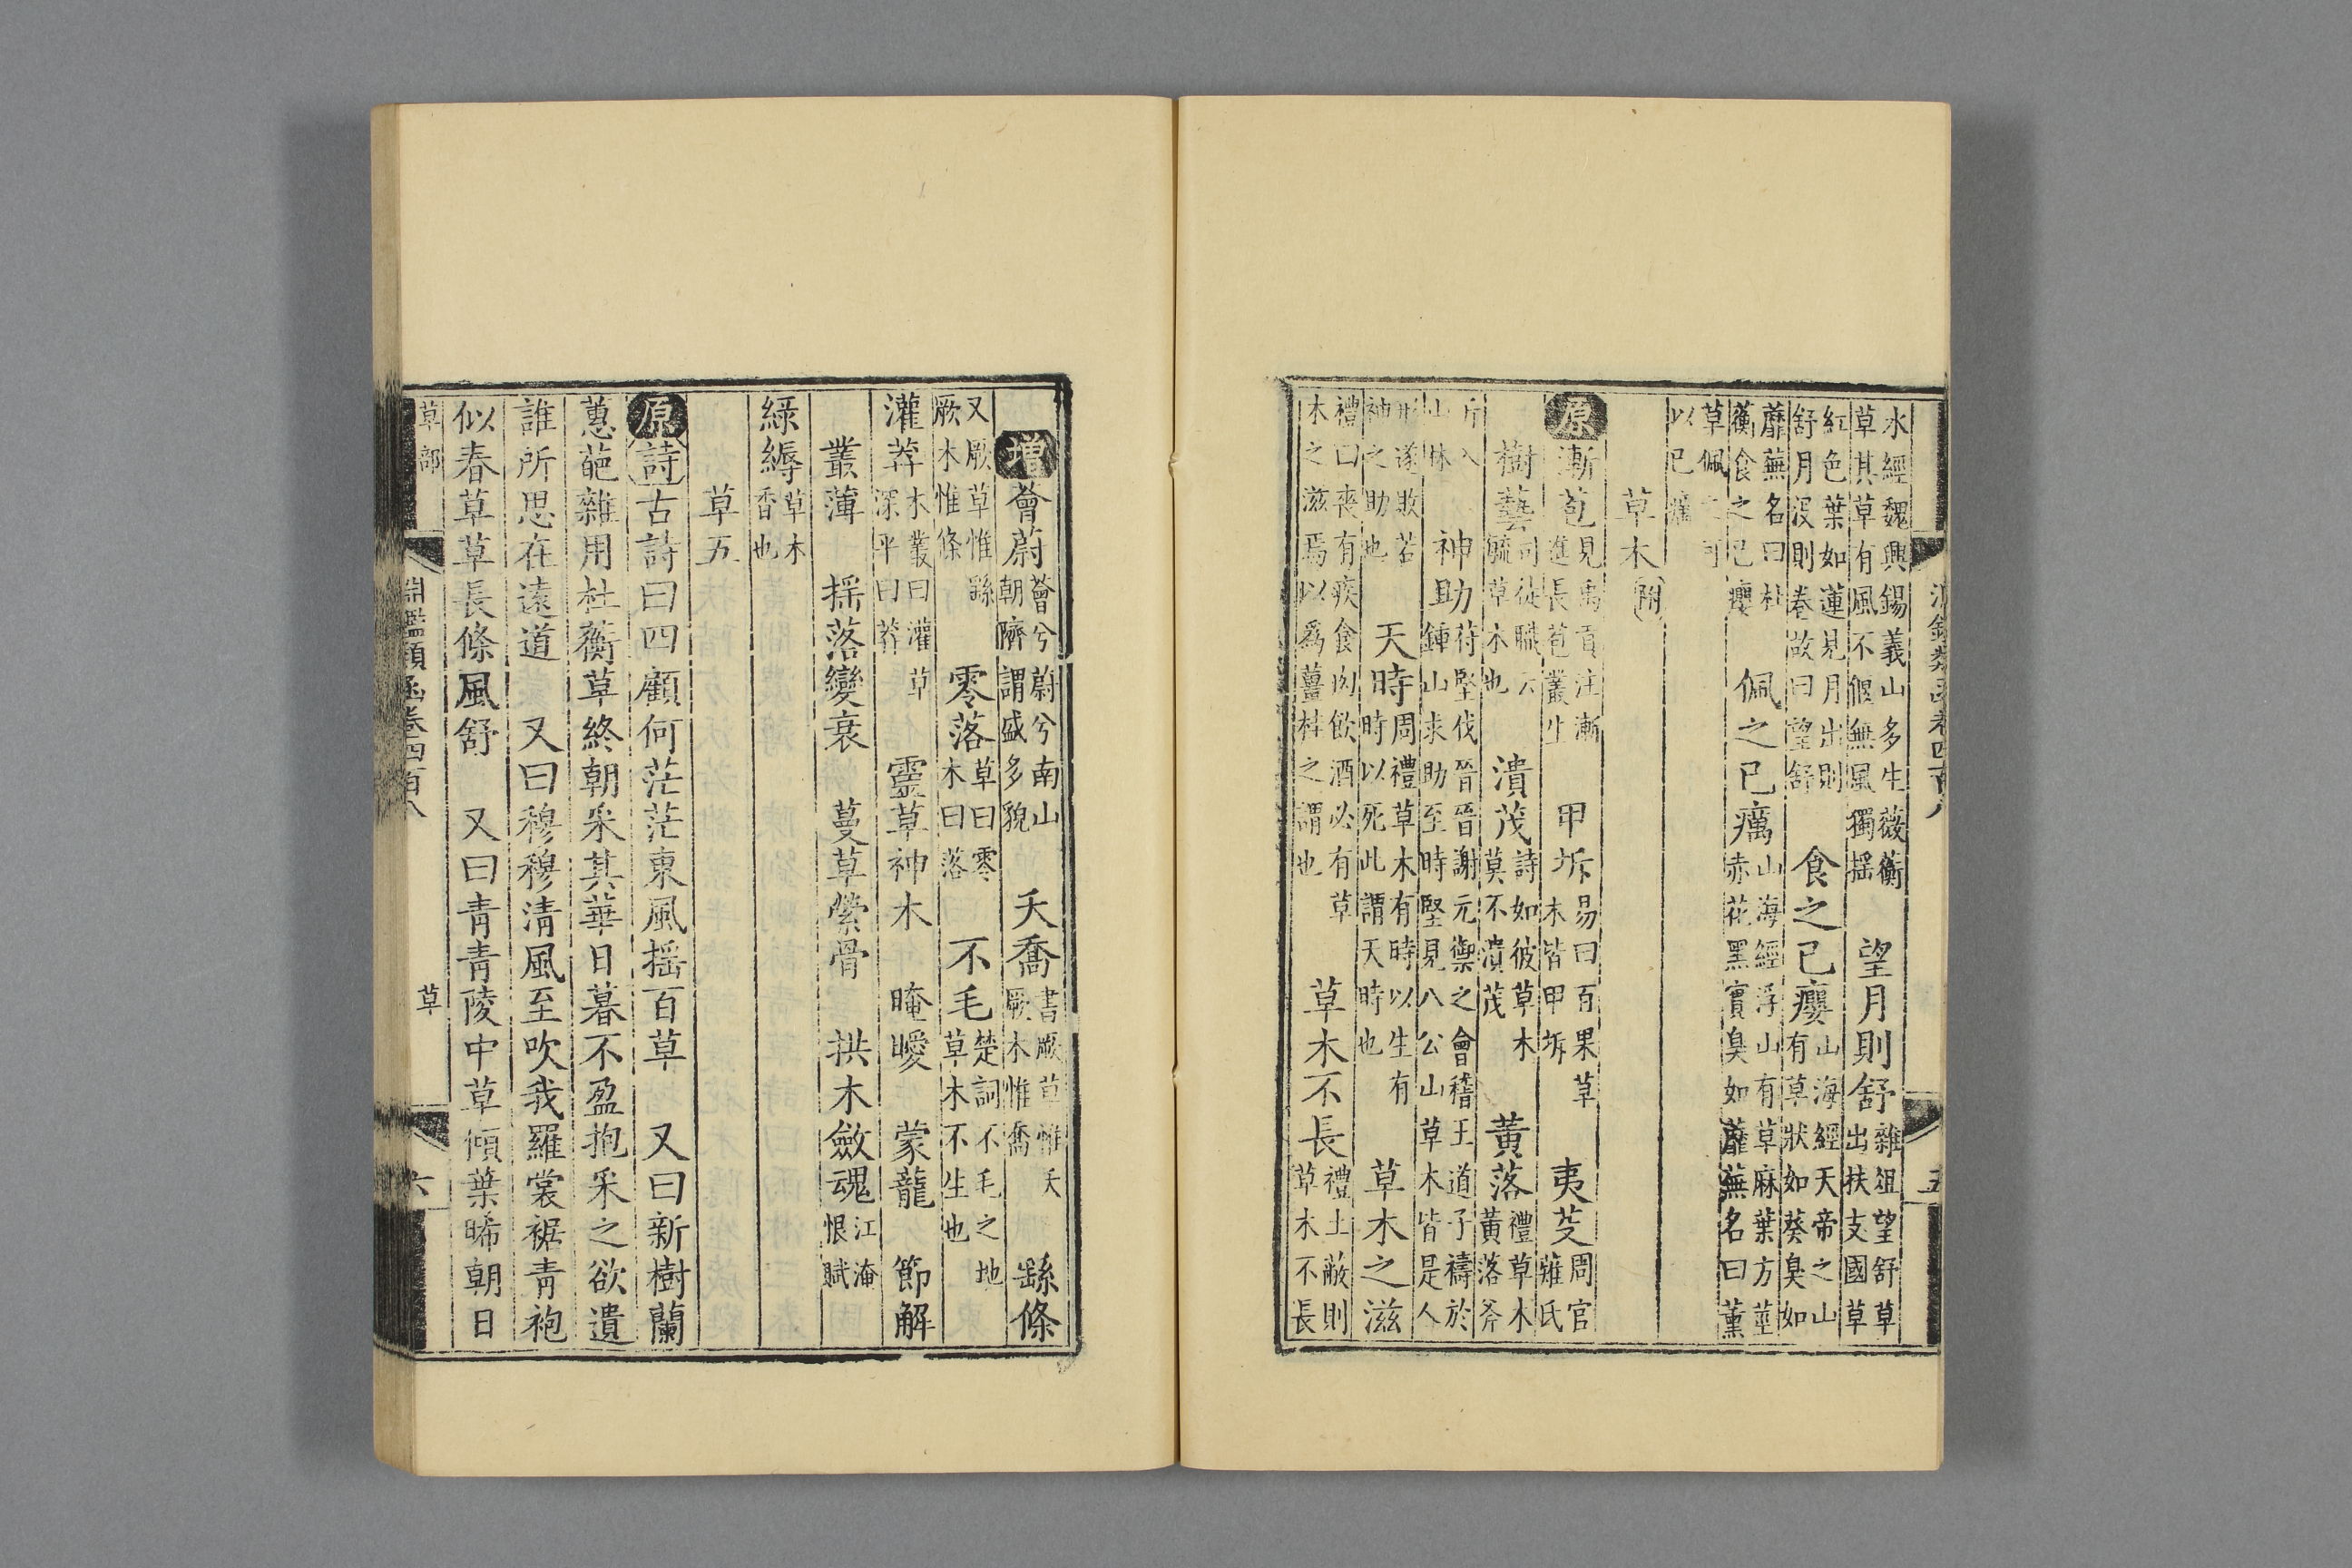 水經魏興錫義山多生薇蘅
草其草有風不偃無風獨揺　望月則舒雜俎望舒草
出扶支國草
紅色葉如蓮見月出則
舒月没則卷故曰望舒　食之已癭山海經天帝之山
有草狀如葵臭如
蘼蕪名曰杜
蘅食之已癭　佩之已癘山海經浮山有草麻葉方莖
赤花黑實臭如蘼蕪名曰薰
草佩之可
以已癘
草木附
原漸苞見禹貢注漸
進長苞叢生　甲坼易曰百果草
木皆甲坼　夷芟周官
薙氏
樹藝司徒職云
毓草木也　潰茂詩如彼草木
莫不潰茂　黃落禮草木
黃落斧
斤入
山林　神助苻堅伐晉晉謝元禦之會稽王道子禱於
鍾山求助至時堅見八公山草木皆是人
形遂敗若
神之助也　天時周禮草木有時以生有
時以死此謂天時也　草木之滋
禮曰喪有疾食肉飲酒必有草
木之滋焉以爲薑桂之謂也　草木不長禮土敝則
草木不長
增薈蔚薈兮蔚兮南山
朝隮謂盛多貌　夭喬書厥草惟夭
厥木惟喬　繇條
又厥草惟繇
厥木惟條　零落草曰零
木曰落　不毛楚詞不毛之地
草木不生也
灌莽木叢曰灌草
深平曰莽　靈草神木　晻曖　蒙蘢　節解
叢薄　揺落變衰　蔓草縈骨　拱木斂魂江淹
恨賦
綠縟草木
香也
草五
原詩古詩曰四顧何茫茫東風揺百草　又曰新樹蘭
蕙葩雜用杜蘅草終朝采其華日暮不盈抱采之欲遺
誰所思在遠道　又曰穆穆清風至吹我羅裳裾青袍
似春草草長條風舒　又曰青青陵中草傾葉晞朝日
草部　淵鑑類函卷四百八　草　六